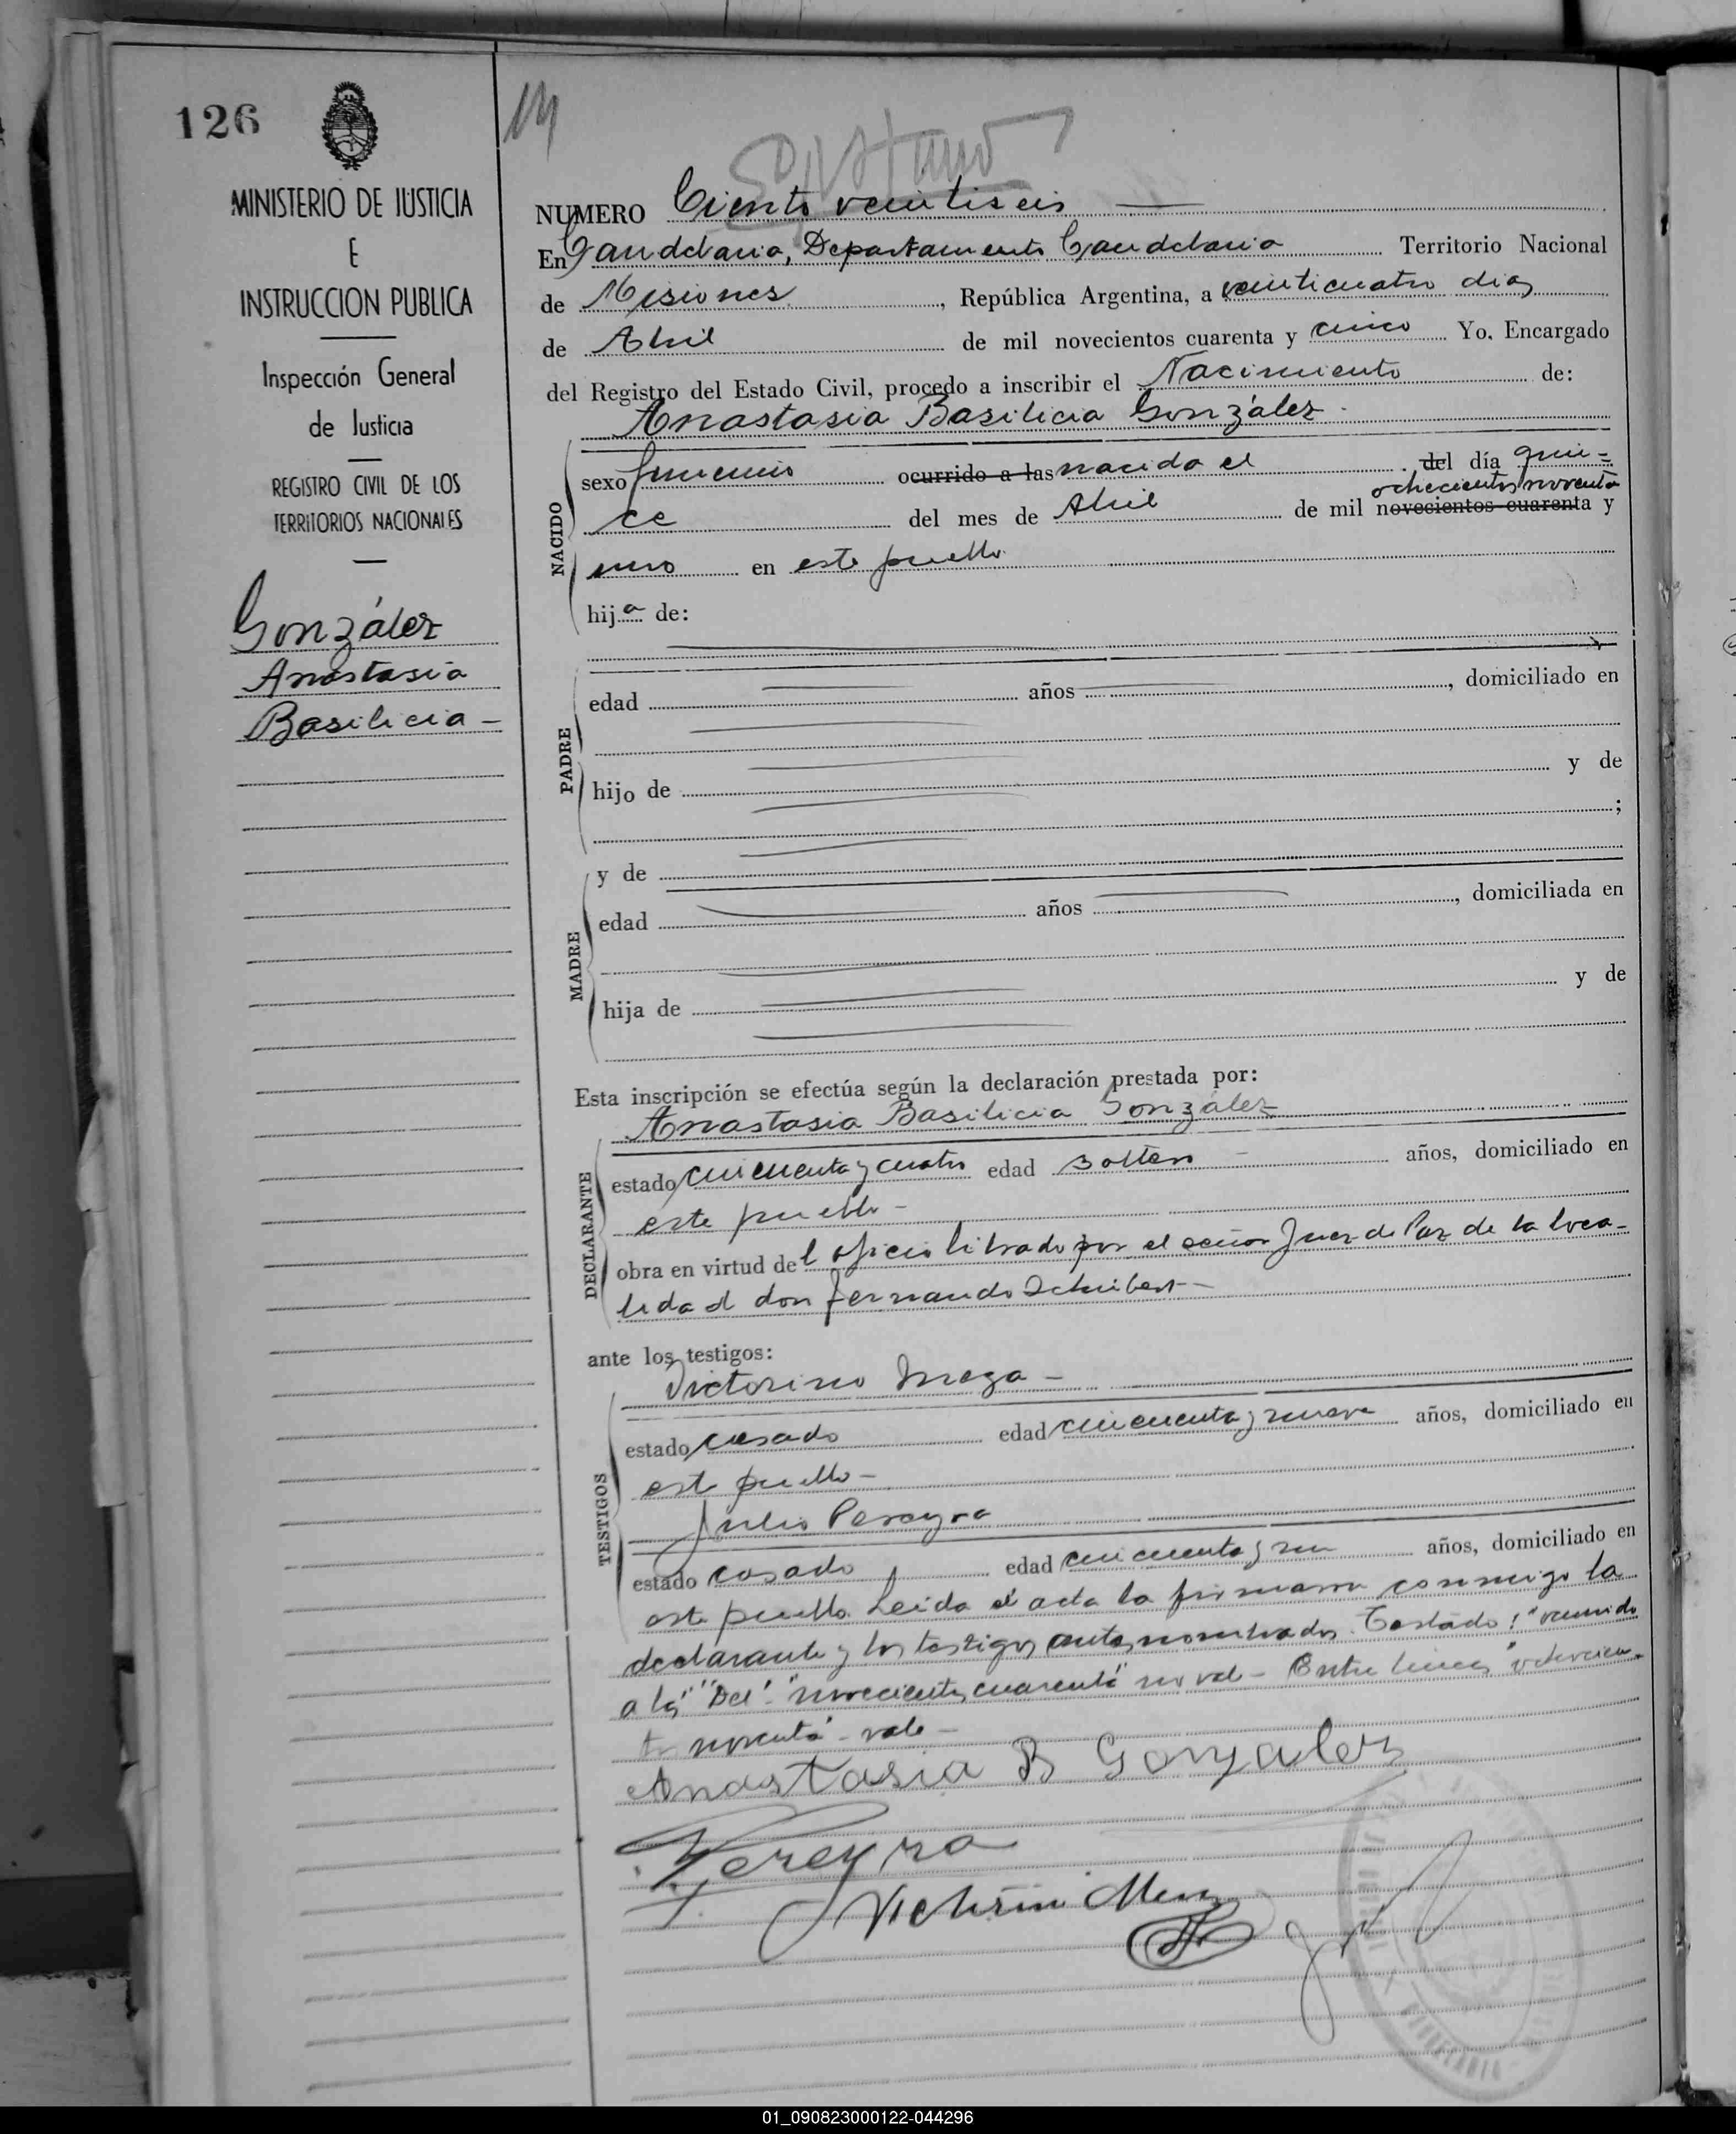 126
MINISTERIO DE JUSTICIA
E
INSTRUCCION PUBLICA
Inspección General
de Justicia
REGISTRO CIVIL DE LOS
TERRITORIOS NACIONALES
González
Anastasia
Basilicia -
NUMERO Ciento veintiseis
En Candelaria, Departamento Candelaria Territorio Nacional
de Misiones, República Argentina, a veinticuatro dias
de Abril de mil novecientos cuarenta y cinco Yo. Encargado
del Registro del Estado Civil, procedo a inscribir el Nacimiento de:
Anastasia Basilicia González -
NACIDO
sexo femenino ocurrido a las nacida el del día quin=
ochocientos noventa
ce del mes de Abril de mil novecientos cuarenta y
uno en este pueblo
hija de:
PADRE
edad años, domiciliado en
hijo de y de
;
y de
MADRE
edad años, domiciliada en
hija de y de
Esta inscripción se efectúa según la declaración prestada por:
Anastasia Basilicia González
DECLARANTE
estado cincuenta y cuatro edad soltera - años, domiciliado en
este pueblo -
obra en virtud del oficio librado por el señor Juez de Paz de la loca-
lidad don Fernando Schubert -
ante los testigos:
Victorino Meza -
TESTIGOS
estado casado edad cincuenta y nueve años, domiciliado en
este pueblo -
Julio Pereyra
estado casado edad cincuenta y un años, domiciliado en
este pueblo. Leida el acta la firmaron conmigo la
declarante y los testigos antes nombrados. Testado: "ocurrido
a las" "Del" "novecientos cuarenta" no vale - Entre lineas "ochocien-
tos noventa" - vale -
Anastasia B Gonzalez
Pereyra
Victorino Meza
01_090823000122-044296